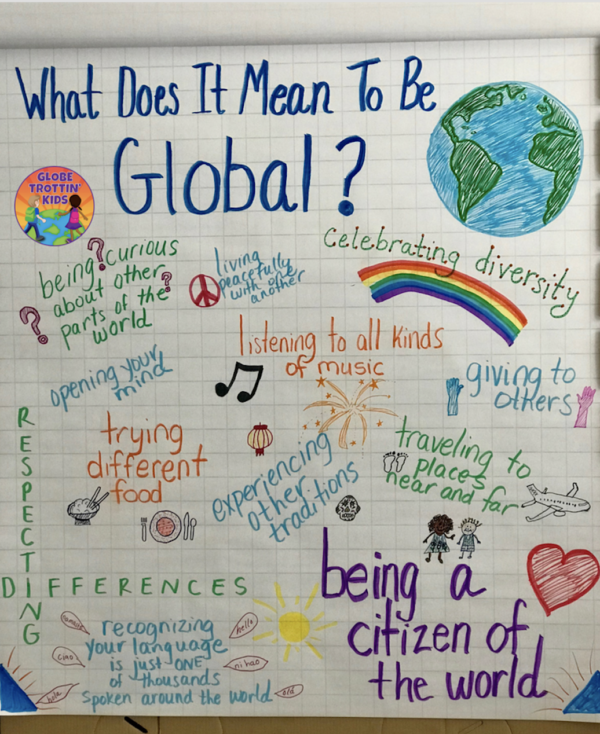 What Does It Mean To Be
Global?
GLOBE
TROTTIN'
KIDS
being curious
about other
parts of the
world
???
living
peacefully
with one
another
celebrating diversity
listening to all kinds
of music
opening your
mind
giving to
others
trying
different
food
experiencing
other
traditions
traveling to
places
near and far
RESPECTING
DIFFERENCES
being a
citizen of
the world
recognizing
your language
is just ONE
of thousands
spoken around the world
hello
ciao
ni hao
hola